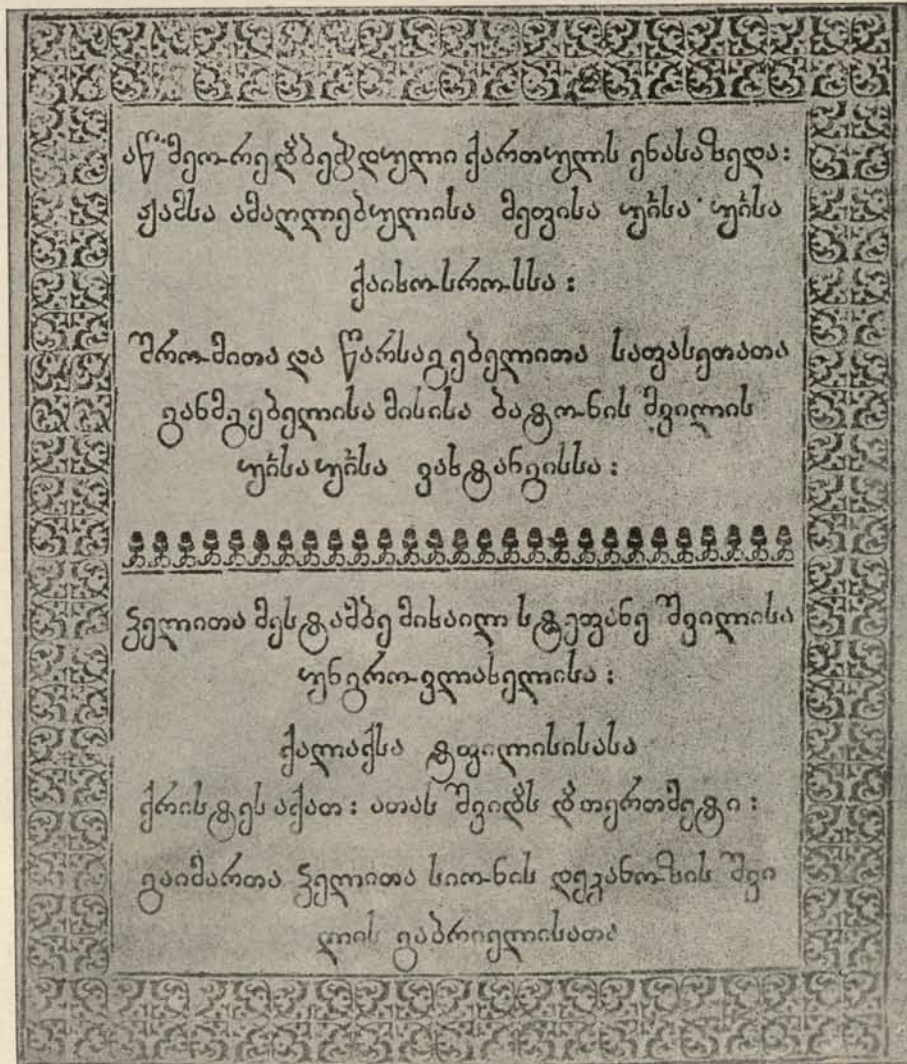 აწ მეორედ ბეჭდული ქართულს ენასა ზედა:
ჟამსა ამაღლებულისა მეფისა უ˜ისა უ˜ისა
ქაიხოსროსსა:
შრომითა და წარსაგებელითა საფასეთათა
განმგებელისა მისისა ბატონის შვილის
უ˜ისა უ˜ისა ვახტანგისსა:
ჴელითა მესტამბე მიხაილ სტეფანე შვილისა
უნგროვლახელისა:
ქალაქსა ტფილისისასა
ქრისტეს აქათ: ათას შვიდს და თერთმეტი:
გაიმართა ჴელითა სიონის დეკანოზის შვი
ლის გაბრიელისათა